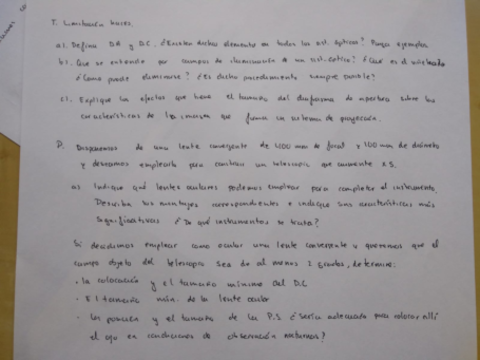 T. Limitación haces.
a). Defina DA y DC. ¿Existen dichos elementos en todos los sist. ópticos? Ponga ejemplos.
b). Que se entiende por campos de iluminación de un sist. óptico? ¿Qué es el viñeteado
¿Cómo puede eliminarse? ¿Es dicho procedimiento siempre posible?
c). Explique los efectos que tiene el tamaño del diafragma de apertura sobre las
características de la imagen que forma un sistema de proyección.
P. Disponemos de una lente convergente de 400 mm de focal y 100 mm de diámetro
y deseamos emplearla para construir un telescopio que aumente x5.
a) Indique qué lentes oculares podemos emplear para completar el instrumento.
Describa los montajes correspondientes e indique sus características más
significativas ¿De qué instrumentos se trata?
Si decidimos emplear como ocular una lente convergente y queremos que el
campo objeto del telescopio sea de al menos 2 grados, determine:
· la colocación y el tamaño mínimo del D.C
· El tamaño mín. de la lente ocular
· La posición y el tamaño de la P.S ¿Sería adecuada para colocar allí
el ojo en condiciones de observación nocturnas?